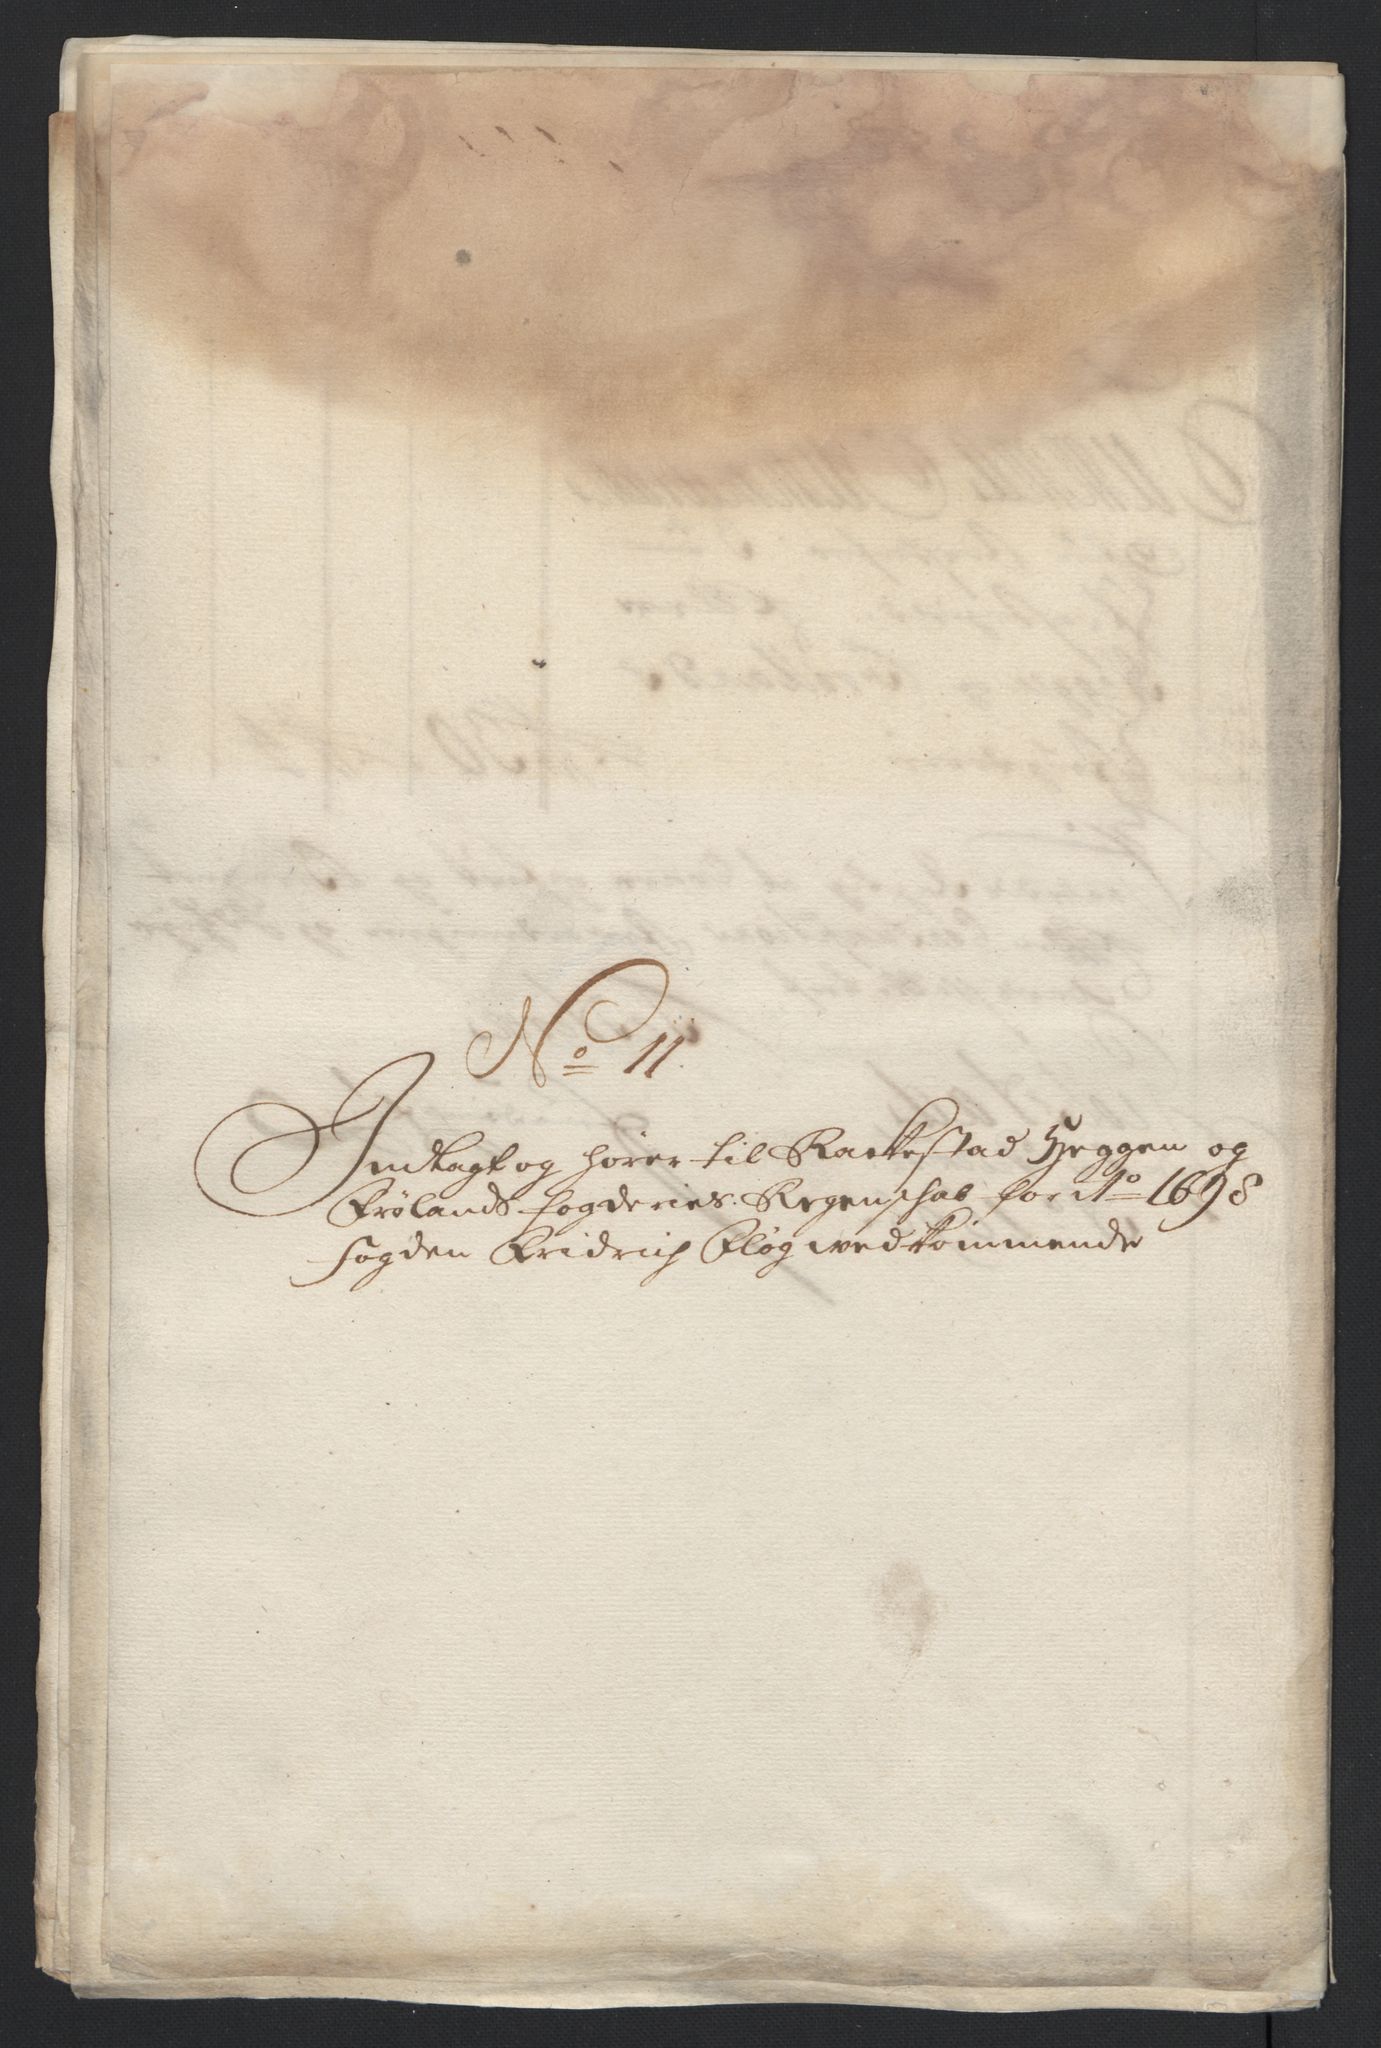 No 11.
Indlagt og hører til Rackestad Heggen og
Frølands fogderies Regenschab for Ao 1698
fogden Fridrich Fløg wedkommende